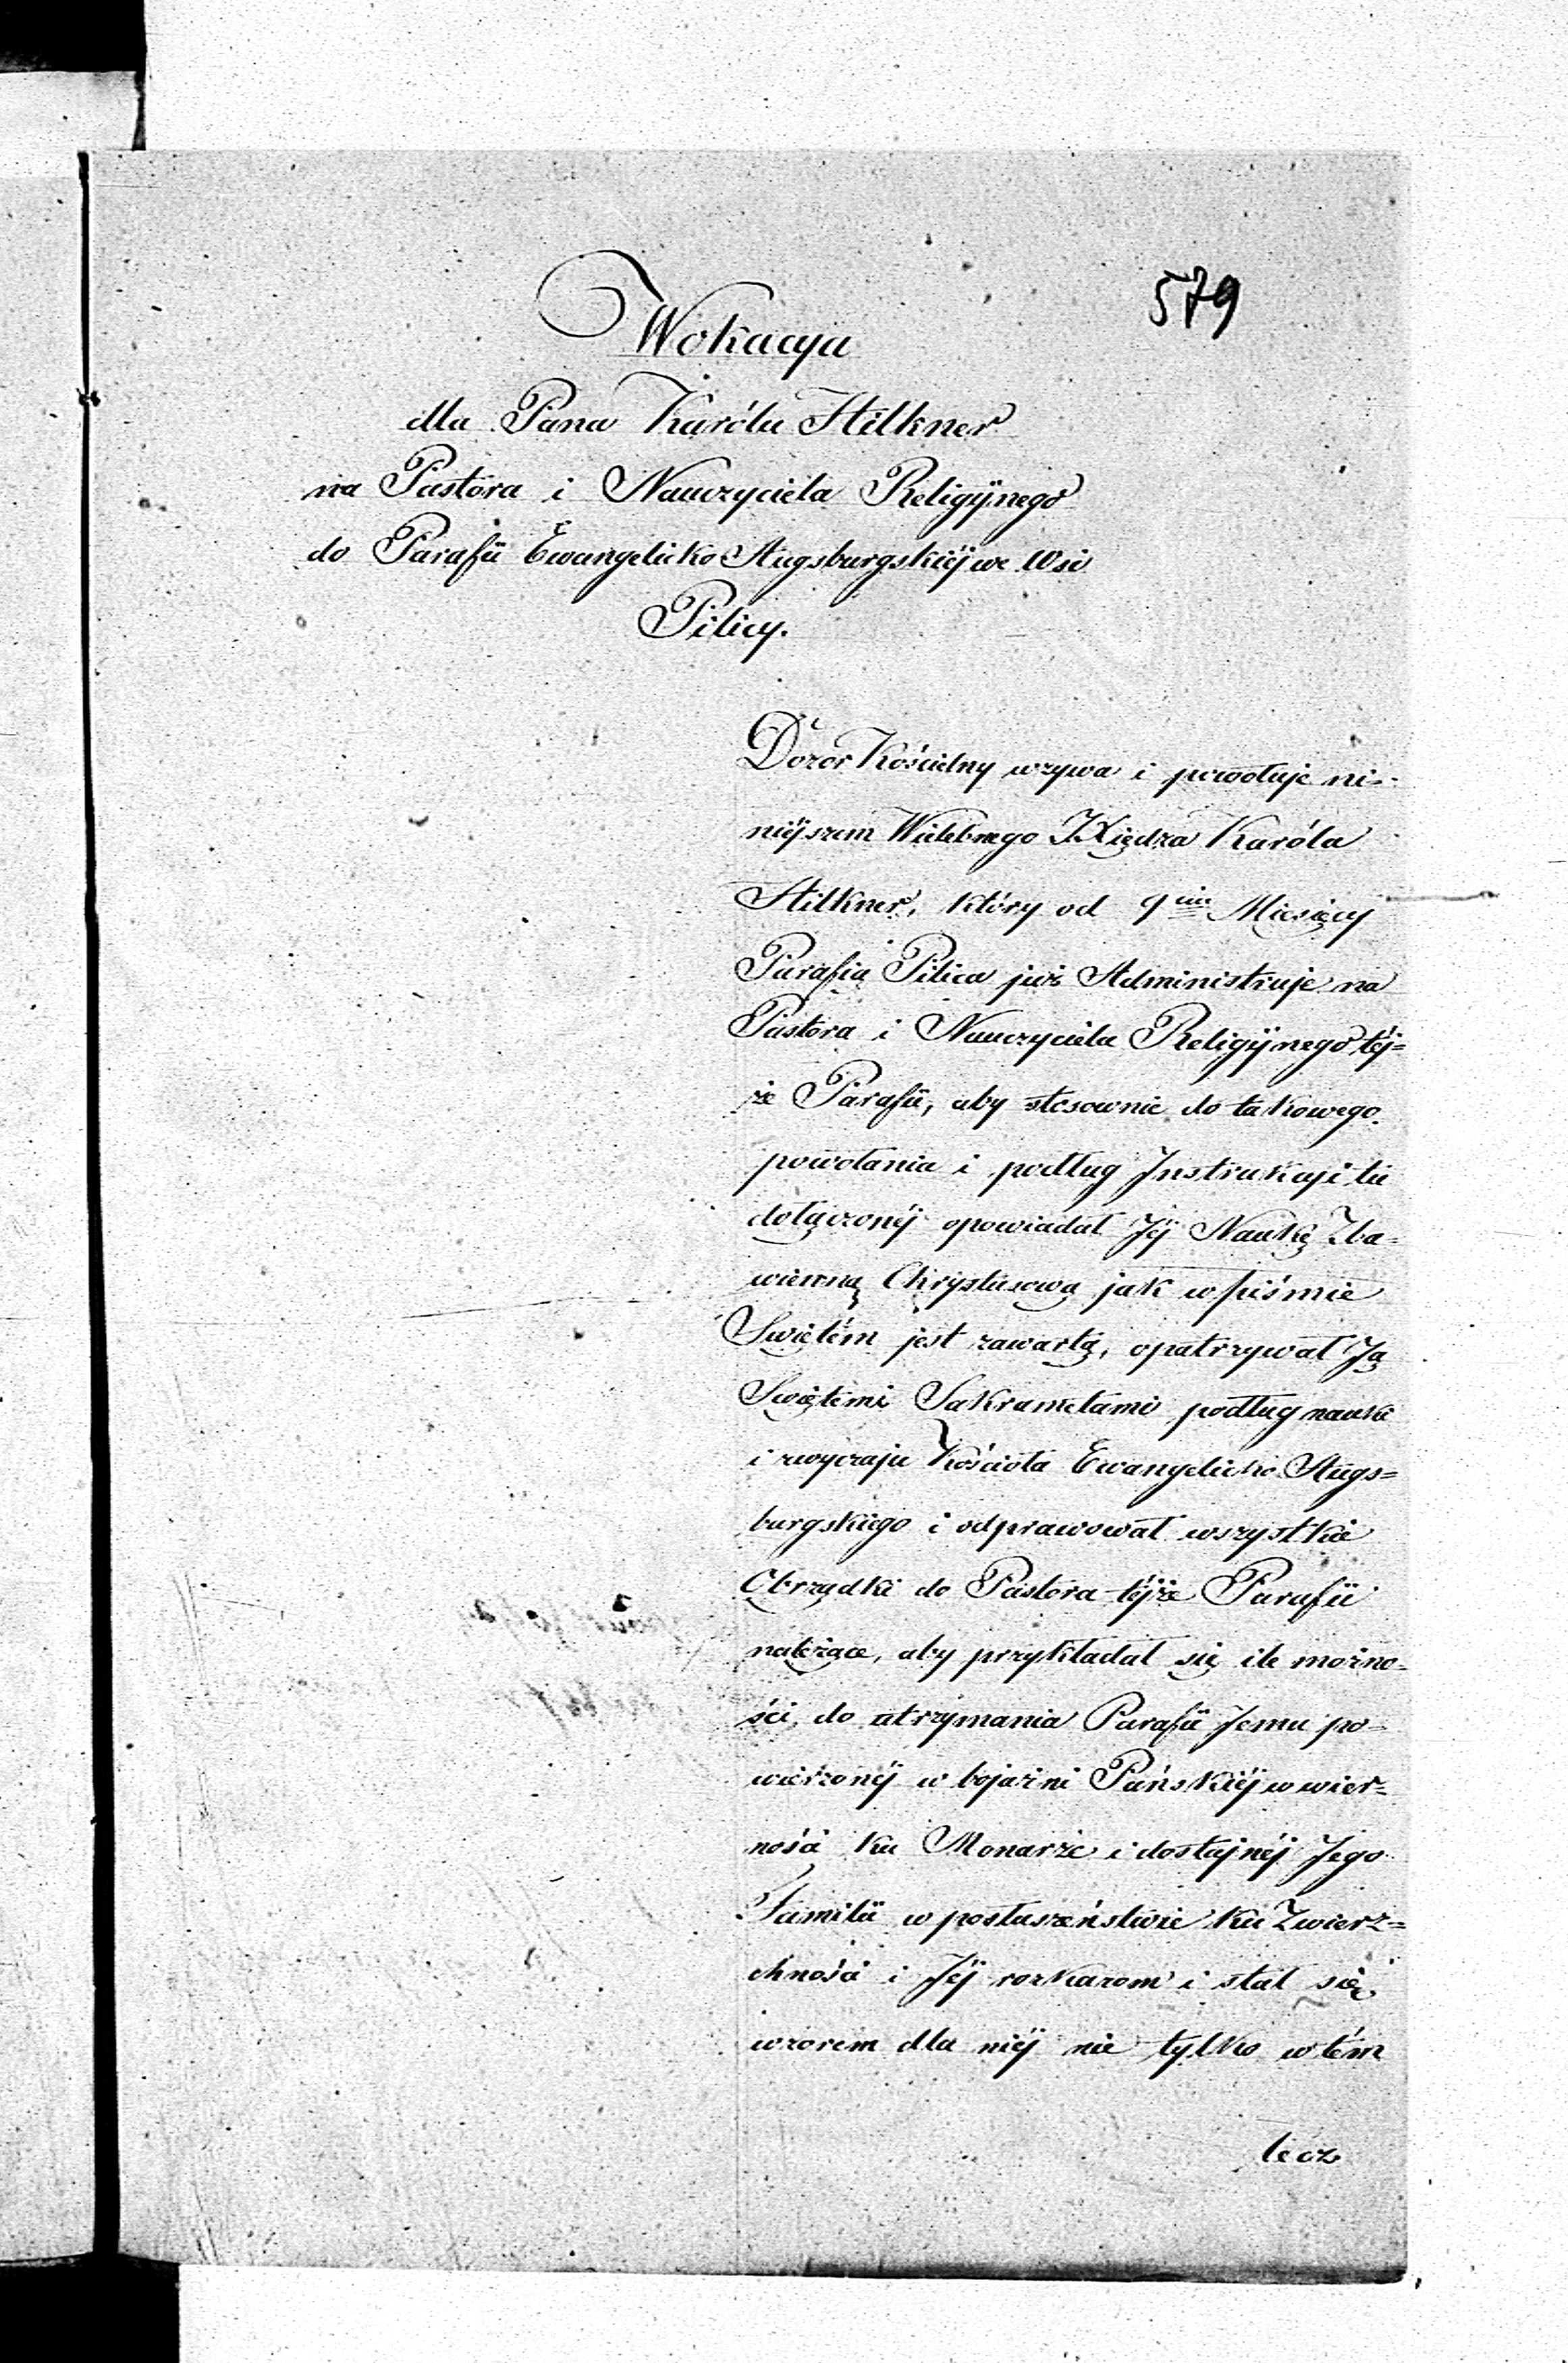 579
Wokacya
dla Pana Karóla Hilkner
na Pastora i Nauczyciela Religÿnego
do Parafii Ewangelicko Augsburgskiéj we Wsi
Pilicy.
Dozor Kościelny wzywa i powołuje ni-
niéjszem Wielebnego JXiędza Karóla
Hilkner, który od 9ciu Miesięcy
Parafią Pilica już Administruje na
Pastora i Nauczyciela Religÿnego téj=
że Parafii, aby stosownie do takowego
powołania i podług Instrukcyi tu
dołączonéj opowiadał Jéj Naukę Zba-
wienną Chrystusową jak w piśmie
Swiętém jest zawartą, opatrzywał Ją
Swiętemi Sakrametami podług nauki
i zwyczaju Kościoła Ewangelicko Augs=
burgskiego i odprawował wszystkie
Obrządki do Pastora téjże Parafii
należące, aby przykładał się ile możno-
ści do utrzymania Parafii Jemu po-
wierzonéj w bojaźni Pańskiéj w wier=
ności ku Monarże i dostojnéj Jego
Familii w posłuszeństwie ku Zwierz=
chności i Jéj rozkazom i stał się
wzorem dla niéj nie tylko w tém
lecz